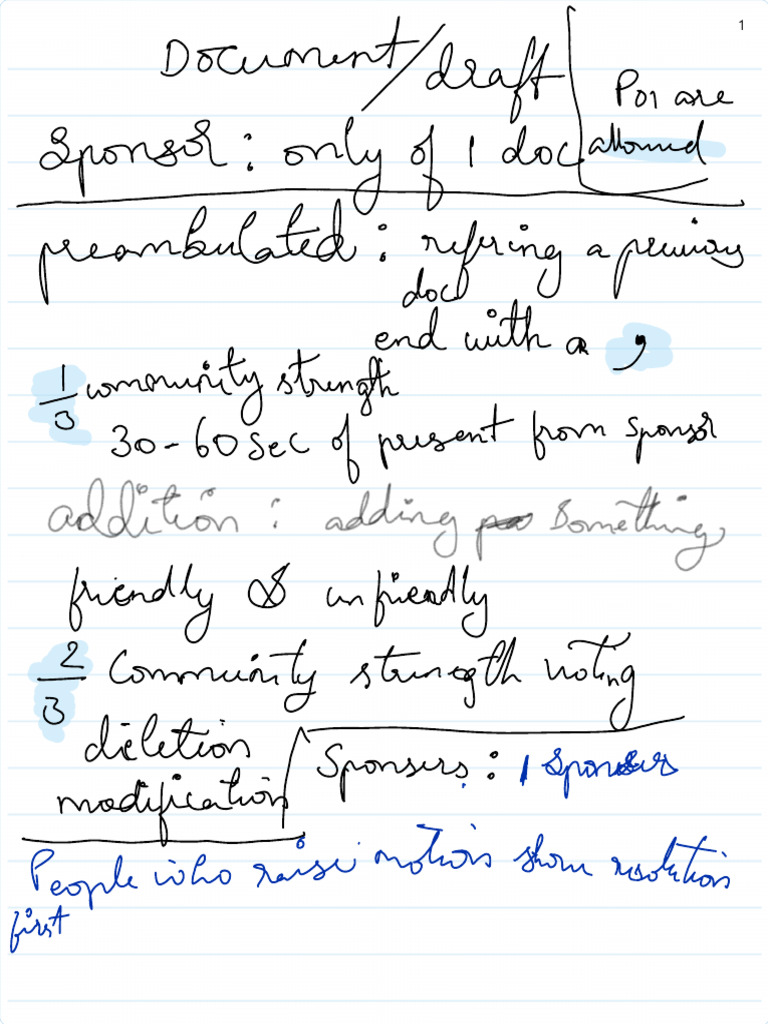 1
Document/draft
POI are
allowed
Sponsor: only of 1 doc.
preambulated: refering a previous
doc
end with a ,
1/3 community strength
30-60 sec of present from sponsor
addition: adding something,
friendly & unfriendly
2/3 Community strength voting
deletion
modification
Sponsers: 1 sponser
People who raise motions show resolution
first